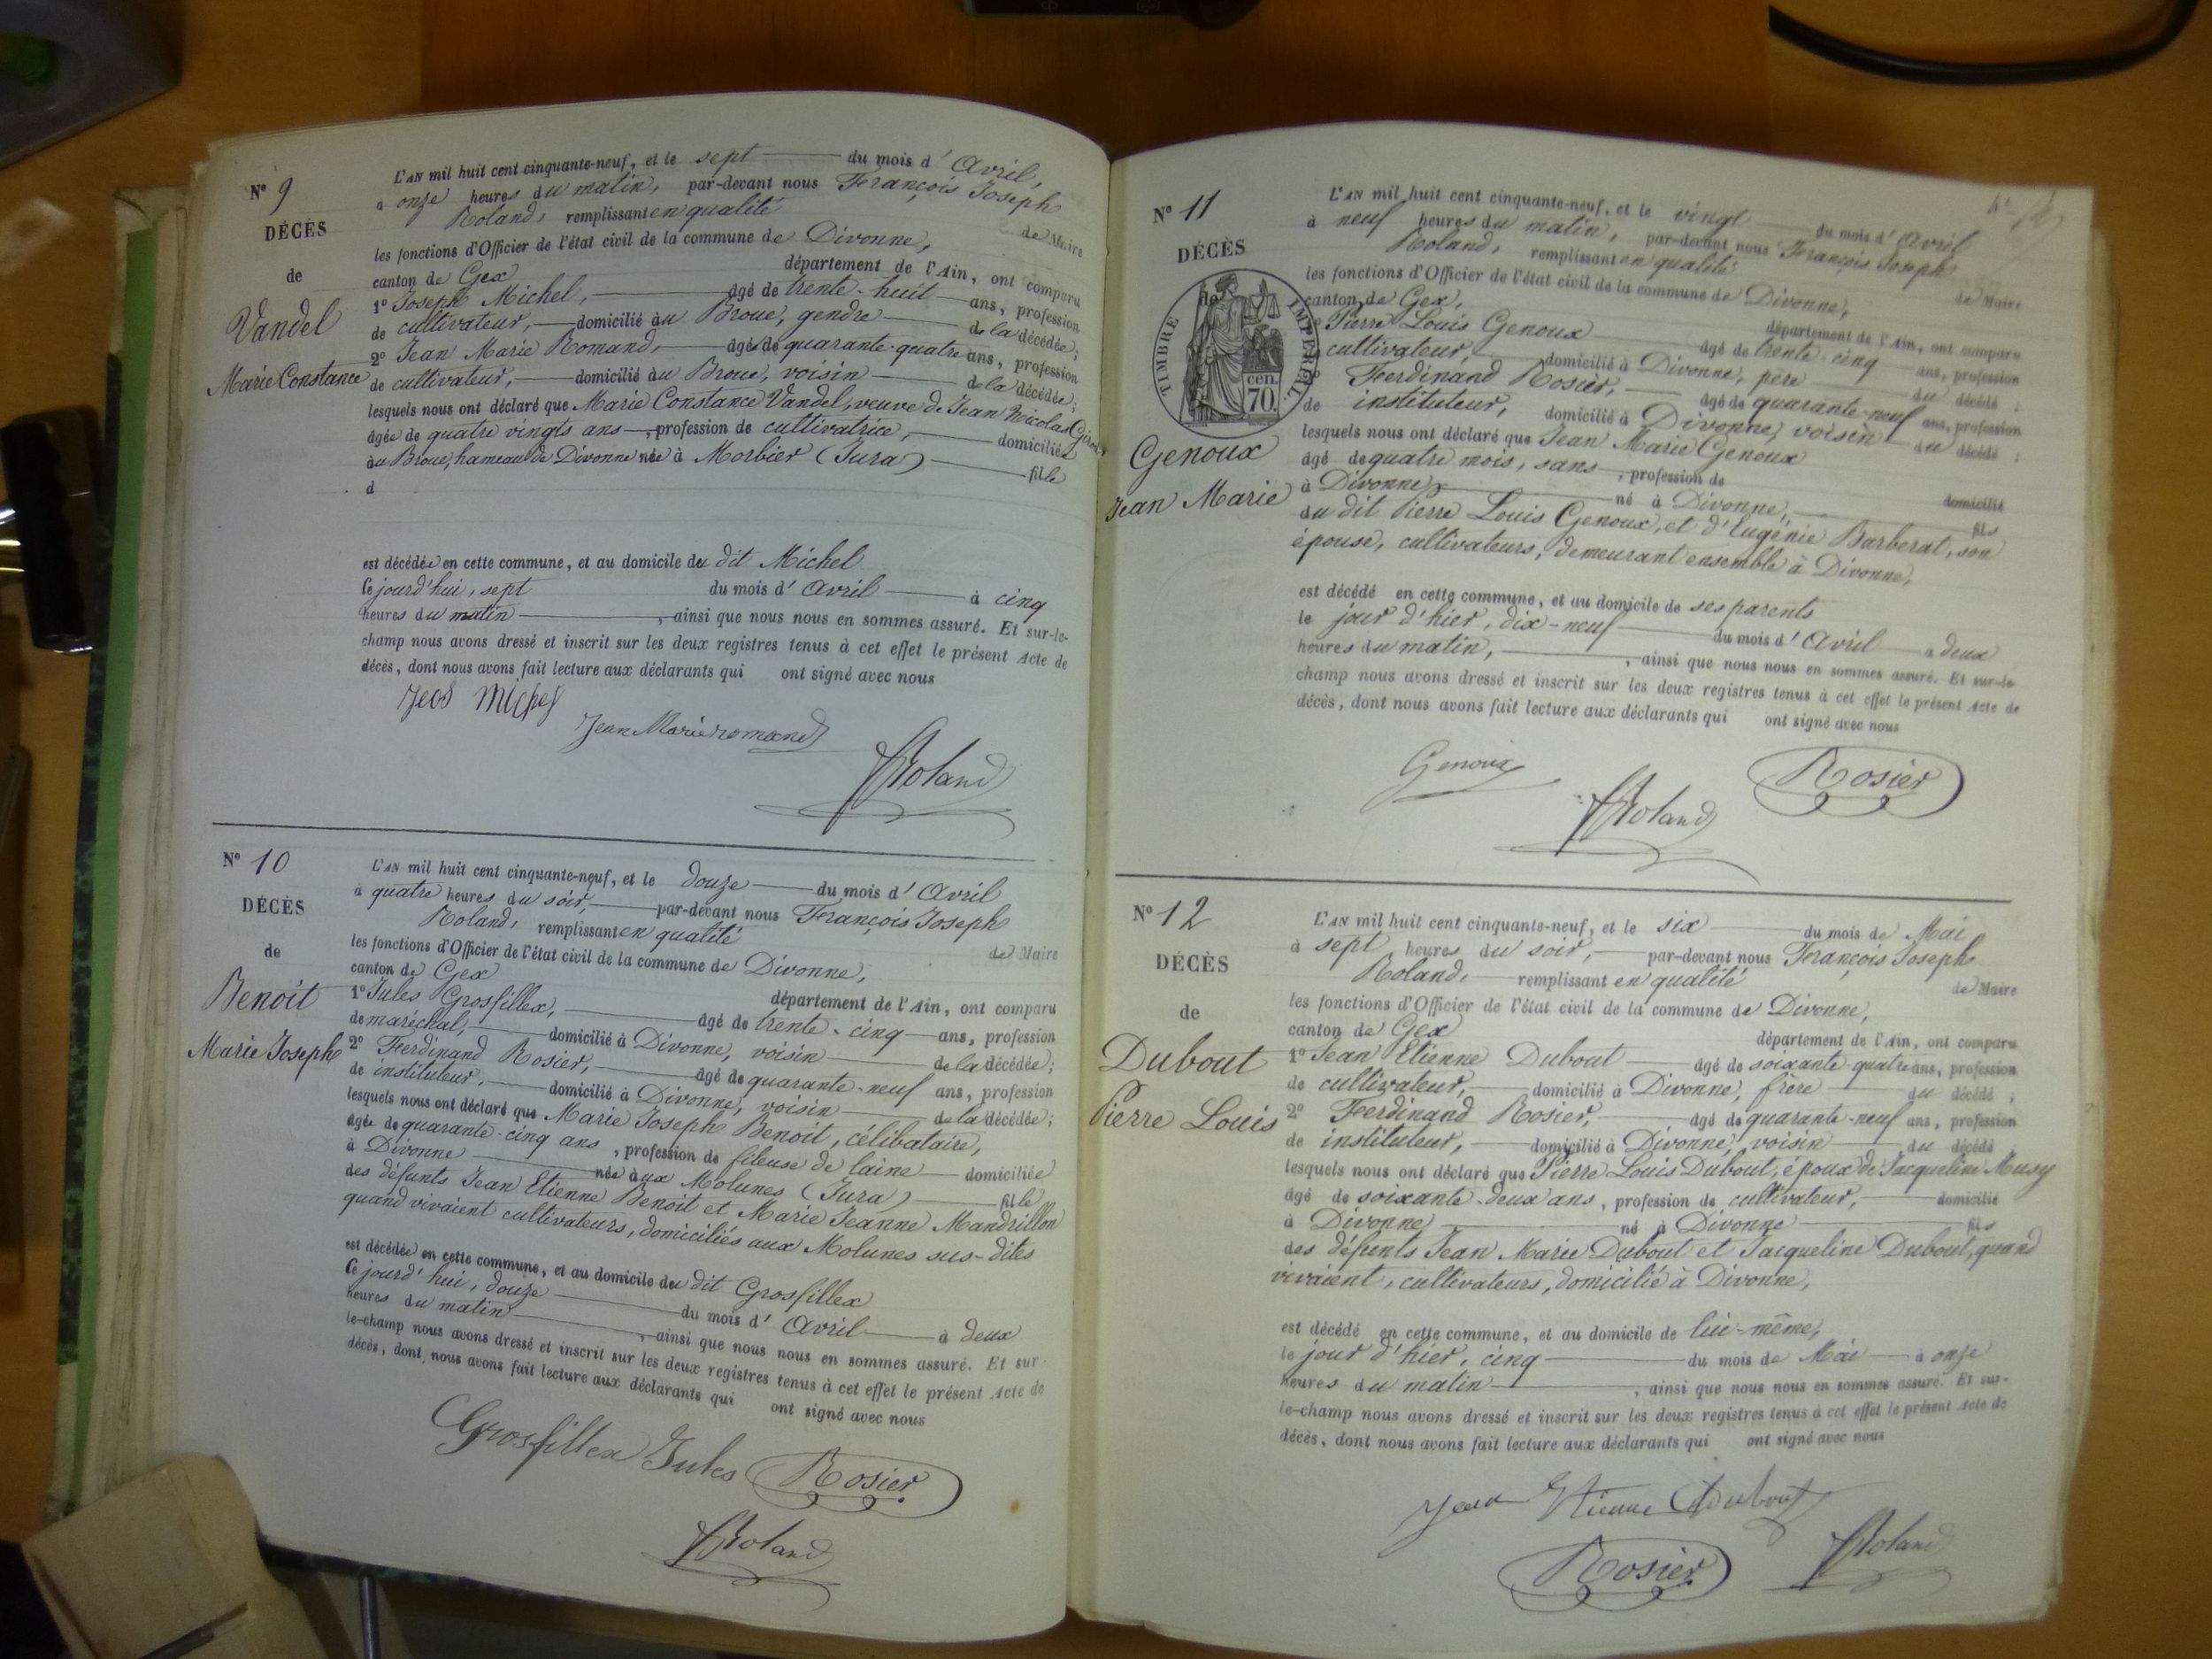 N° 9
DÉCÈS
de
Vandel
Marie Constance
L'AN mil huit cent cinquante-neuf, et le sept du mois d'Avril,
à onze heures du matin, par-devant nous François Joseph
Roland, remplissant en qualité de Maire
les fonctions d'Officier de l'état civil de la commune de Divonne,
canton de Gex département de l'Ain, ont comparu
1° Joseph Michel, âgé de trente-huit ans, profession
de cultivateur, domicilié au Broue, gendre de la décédée;
2° Jean Marie Romand, âgé de quarante-quatre ans, profession
de cultivateur, domicilié au Broue, voisin de la décédée;
lesquels nous ont déclaré que Marie Constance Vandel, veuve de Jean Nicolas
âgée de quatre vingts ans, profession de cultivatrice, domiciliée
au Broue, hameau de Divonne née à Morbier (Jura) fille
d
est décédée en cette commune, et au domicile du dit Michel
Ce jourd'hui, sept du mois d'Avril à cinq
heures du matin, ainsi que nous nous en sommes assuré. Et sur-le-
champ nous avons dressé et inscrit sur les deux registres tenus à cet effet le présent Acte de
décès, dont nous avons fait lecture aux déclarants qui ont signé avec nous
Michel
Jean Marie romand
Roland
N° 10
DÉCÈS
de
Benoit
Marie Joseph
L'AN mil huit cent cinquante-neuf, et le douze du mois d'Avril
à quatre heures du soir, par-devant nous François Joseph
Roland, remplissant en qualité de Maire
les fonctions d'Officier de l'état civil de la commune de Divonne,
canton de Gex département de l'Ain, ont comparu
1° Jules Grosfillex, âgé de trente-cinq ans, profession
de maréchal, domicilié à Divonne, voisin de la décédée;
2° Ferdinand Rosier, âgé de quarante-neuf ans, profession
de instituteur, domicilié à Divonne, voisin de la décédée;
lesquels nous ont déclaré que Marie Joseph Benoit, célibataire,
âgée de quarante-cinq ans, profession de fileuse de laine domiciliée
à Divonne née aux Molunes (Jura) fille
des défunts Jean Etienne Benoit et Marie Jeanne Mandrillon
quand vivaient cultivateurs, domiciliés aux Molunes sus-dites
est décédée en cette commune, et au domicile du dit Grosfillex
Ce jourd'hui, douze du mois d'Avril à deux
heures du matin, ainsi que nous nous en sommes assuré. Et sur-
le-champ nous avons dressé et inscrit sur les deux registres tenus à cet effet le présent Acte de
décès, dont nous avons fait lecture aux déclarants qui ont signé avec nous
Grosfillex Jules
Rosier
Roland
N° 11
DÉCÈS
de
TIMBRE IMPERIAL
70 cen.
Genoux
Jean Marie
L'AN mil huit cent cinquante-neuf, et le vingt du mois d'Avril
à neuf heures du matin, par-devant nous François Joseph
Roland, remplissant en qualité de Maire
les fonctions d'Officier de l'état civil de la commune de Divonne,
canton de Gex, département de l'Ain, ont comparu
Pierre Louis Genoux âgé de trente-cinq ans, profession
cultivateur, domicilié à Divonne, père du décédé;
Ferdinand Rosier, âgé de quarante-neuf ans, profession
de instituteur, domicilié à Divonne, voisin du décédé;
lesquels nous ont déclaré que Jean Marie Genoux
âgé de quatre mois, sans, profession de domicilié
à Divonne, né à Divonne, fils
du dit Pierre Louis Genoux, et d'Eugénie Barberat, son
épouse, cultivateurs, demeurant ensemble à Divonne,
est décédé en cette commune, et au domicile de ses parents
le jour d'hier, dix-neuf du mois d'Avril à deux
heures du matin, ainsi que nous nous en sommes assuré. Et sur-le-
champ nous avons dressé et inscrit sur les deux registres tenus à cet effet le présent Acte de
décès, dont nous avons fait lecture aux déclarants qui ont signé avec nous
Genoux
Rosier
Roland
N° 12
DÉCÈS
de
Dubout
Pierre Louis
L'AN mil huit cent cinquante-neuf, et le six du mois de Mai
à sept heures du soir, par-devant nous François Joseph
Roland, remplissant en qualité de Maire
les fonctions d'Officier de l'état civil de la commune de Divonne,
canton de Gex département de l'Ain, ont comparu
1° Jean Etienne Dubout âgé de soixante-quatre ans, profession
de cultivateur, domicilié à Divonne, frère du décédé;
2° Ferdinand Rosier, âgé de quarante-neuf ans, profession
de instituteur, domicilié à Divonne, voisin du décédé
lesquels nous ont déclaré que Pierre Louis Dubout, époux de Jacqueline Musy
âgé de soixante-deux ans, profession de cultivateur, domicilié
à Divonne né à Divonne fils
des défunts Jean Marie Dubout et Jacqueline Dubout, quand
vivaient, cultivateurs, domicilié à Divonne,
est décédé en cette commune, et au domicile de lui-même,
le jour d'hier, cinq du mois de Mai à onze
heures du matin, ainsi que nous nous en sommes assuré. Et sur-
le-champ nous avons dressé et inscrit sur les deux registres tenus à cet effet le présent Acte de
décès, dont nous avons fait lecture aux déclarants qui ont signé avec nous
Jean Etienne Dubout
Rosier
Roland